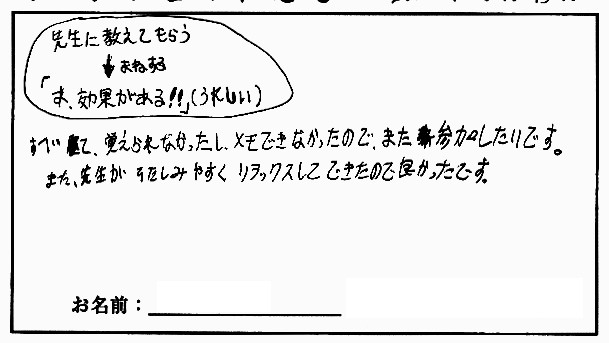 先生に教えてもらう
↓まねする
「お、効果がある!!」(うれしい)
すべて、覚えられなかったし、メモできなかったので、また参加したいです。
また、先生がしたしみやすく リラックスしてできたので良かったです。
お名前：